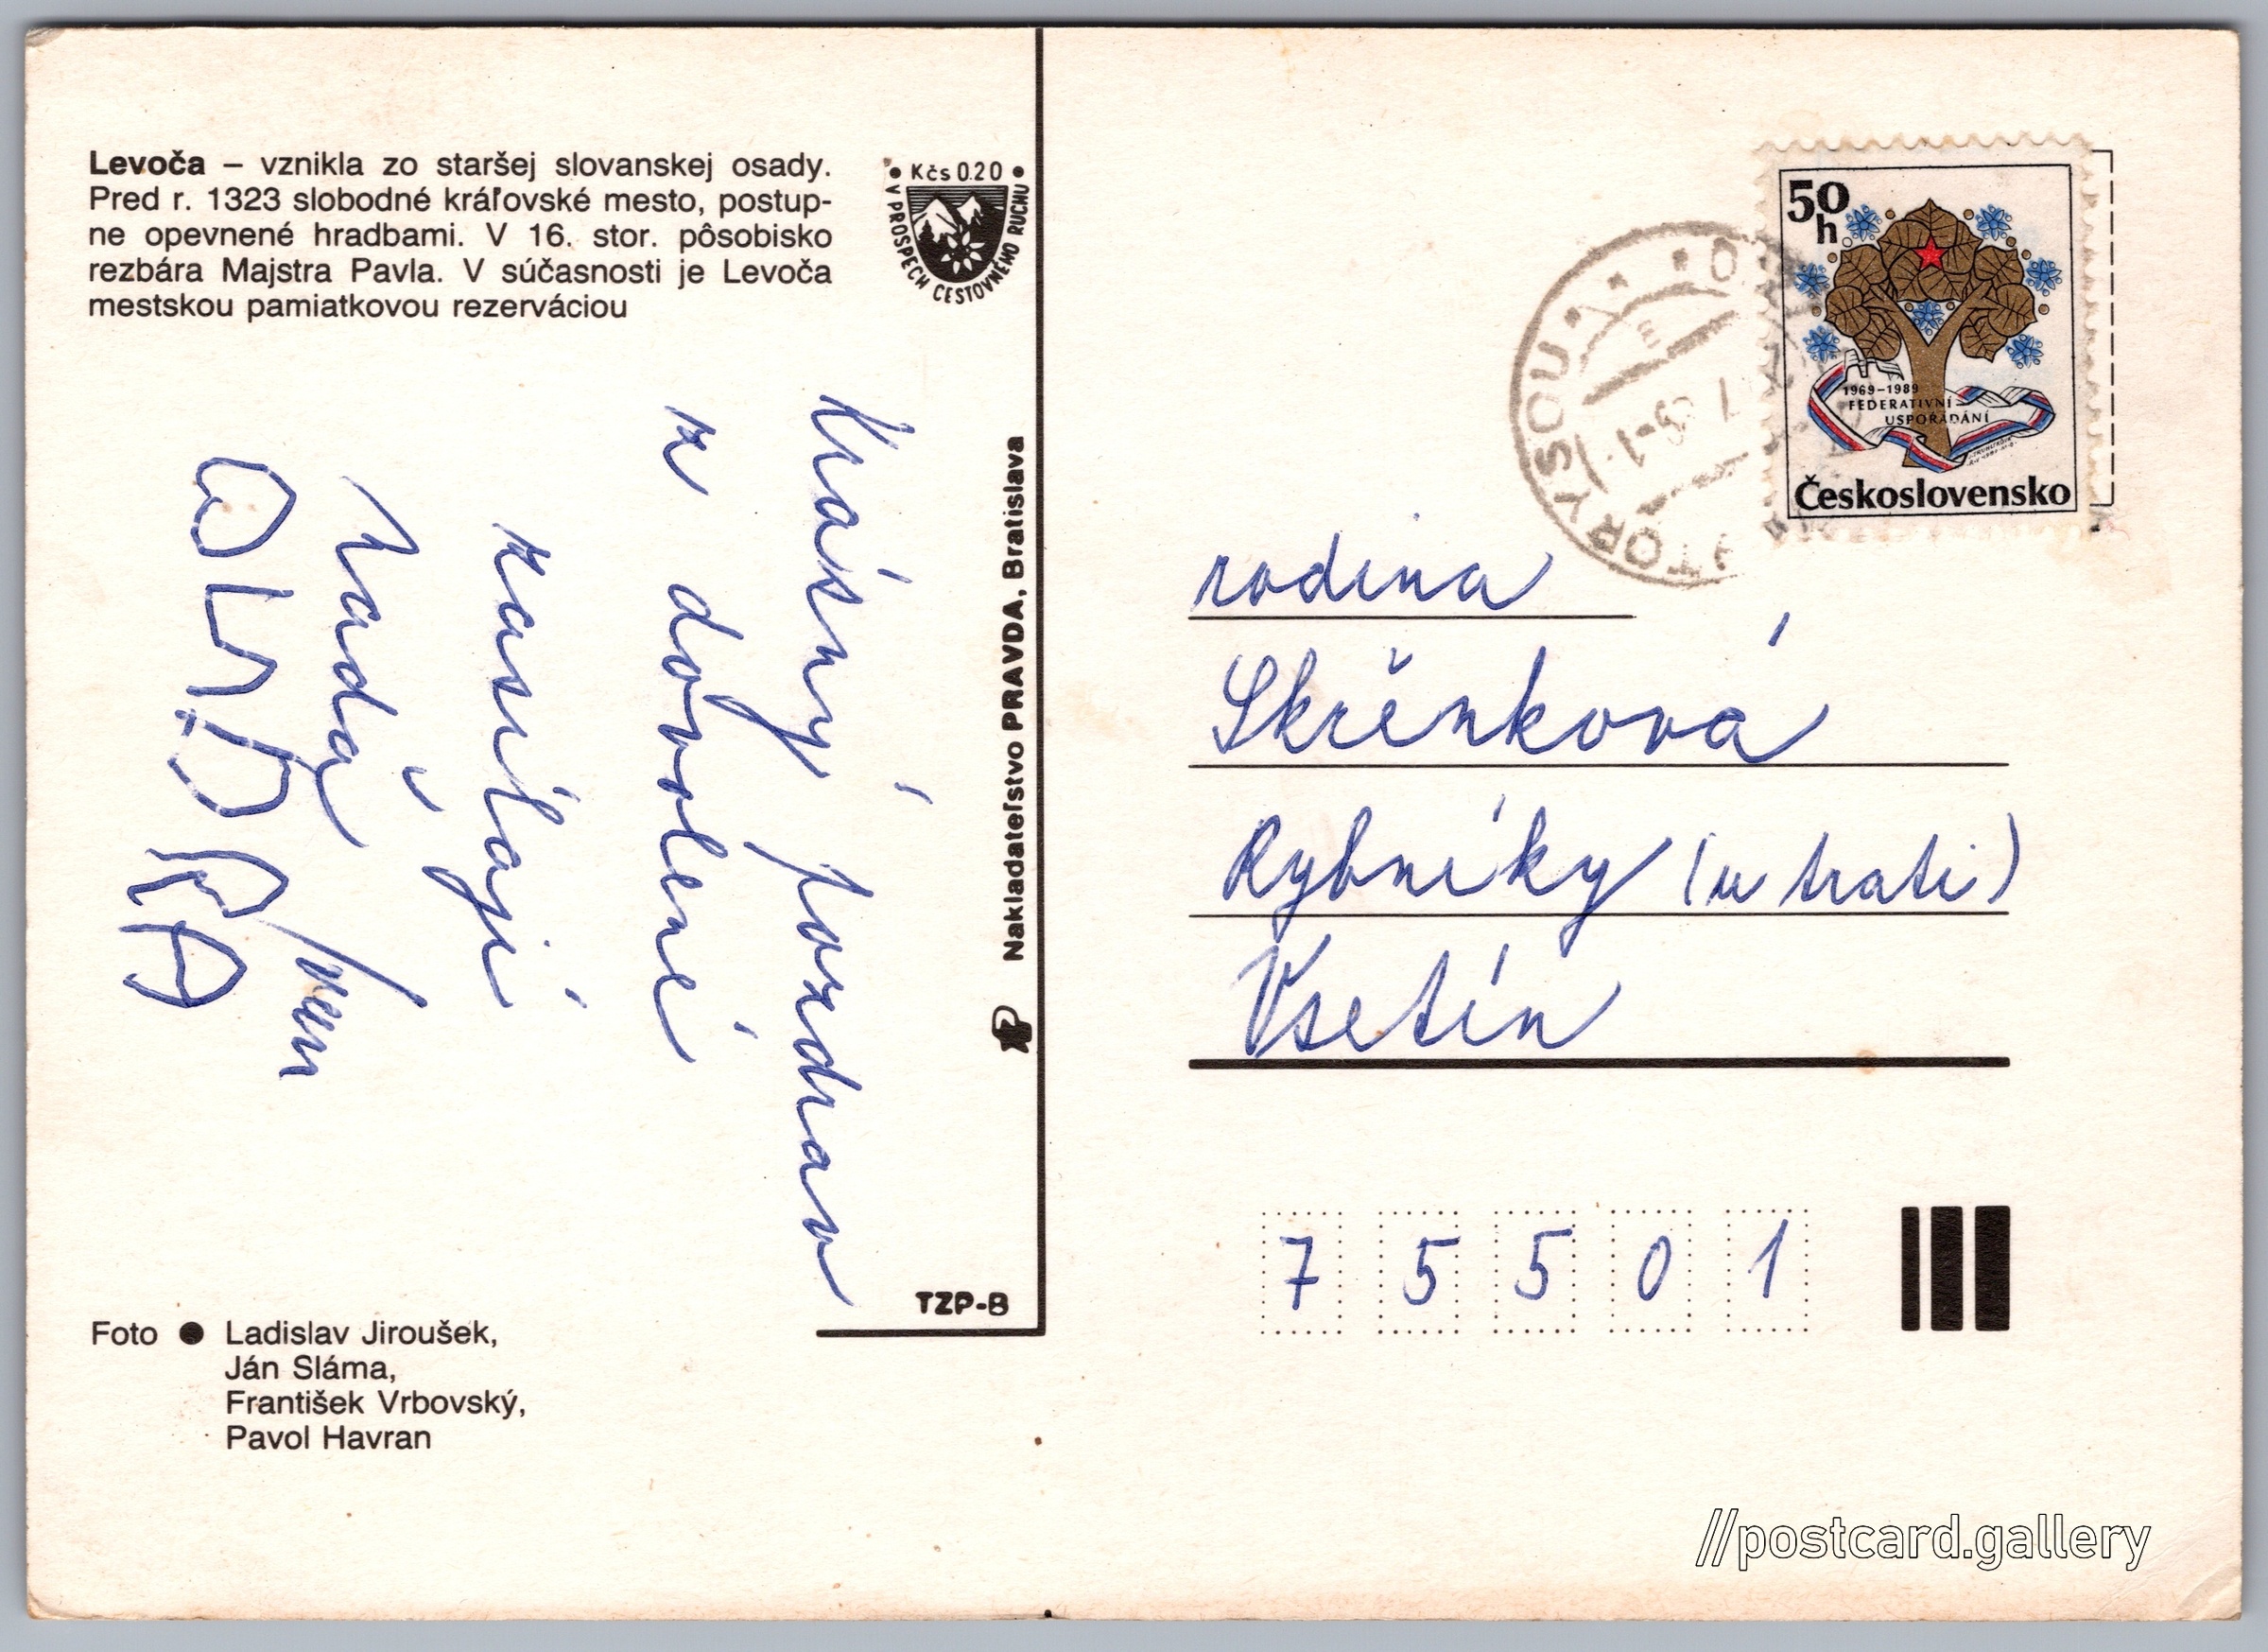 Levoča – vznikla zo staršej slovanskej osady.
Pred r. 1323 slobodné kráľovské mesto, postup-
ne opevnené hradbami. V 16. stor. pôsobisko
rezbára Majstra Pavla. V súčasnosti je Levoča
mestskou pamiatkovou rezerváciou
• Kčs 0.20 •
V PROSPECH CESTOVNÉHO RUCHU
Krásný pozdrav
z dovolené
zasílají
Nakladateľstvo PRAVDA, Bratislava
TZP-B
Foto ● Ladislav Jiroušek,
Ján Sláma,
František Vrbovský,
Pavol Havran
50
h
1969–1989
FEDERATIVNÍ
USPOŘÁDÁNÍ
Československo
TORYSOU
rodina
Skřénková
Rybníky (u trati)
Vsetín
7 5 5 0 1
//postcard.gallery